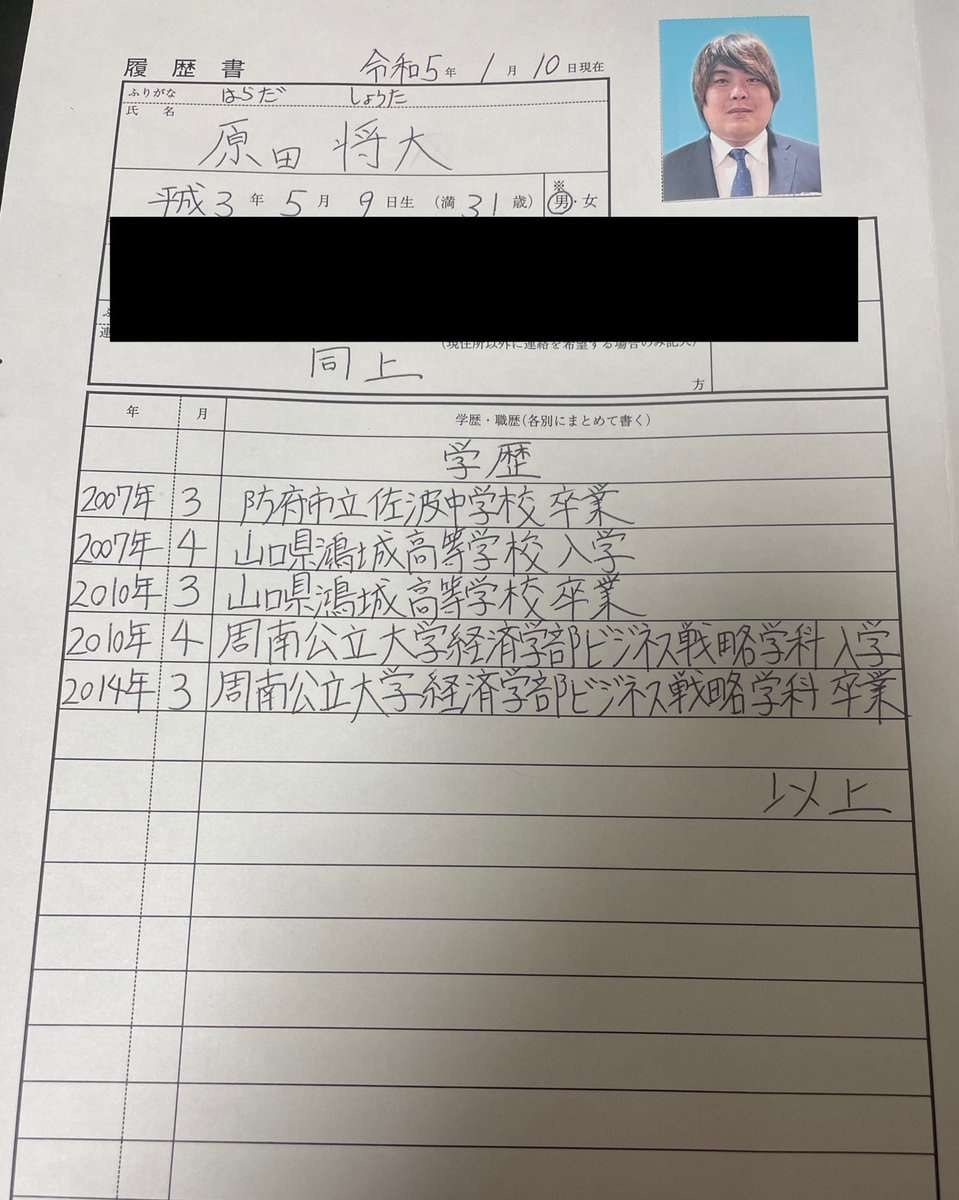 履歴書 令和5年 1月 10日現在
ふりがな はらだ しょうた
氏 名
原田 将大
平成 3年 5月 9日生 (満 31歳) ※ 男・女
(現住所以外に連絡を希望する場合のみ記入)
同上
方
年 月 学歴・職歴(各別にまとめて書く)
学歴
2007年 3 防府市立佐波中学校卒業
2007年 4 山口県鴻城高等学校入学
2010年 3 山口県鴻城高等学校卒業
2010年 4 周南公立大学経済学部ビジネス戦略学科入学
2014年 3 周南公立大学経済学部ビジネス戦略学科卒業
以上